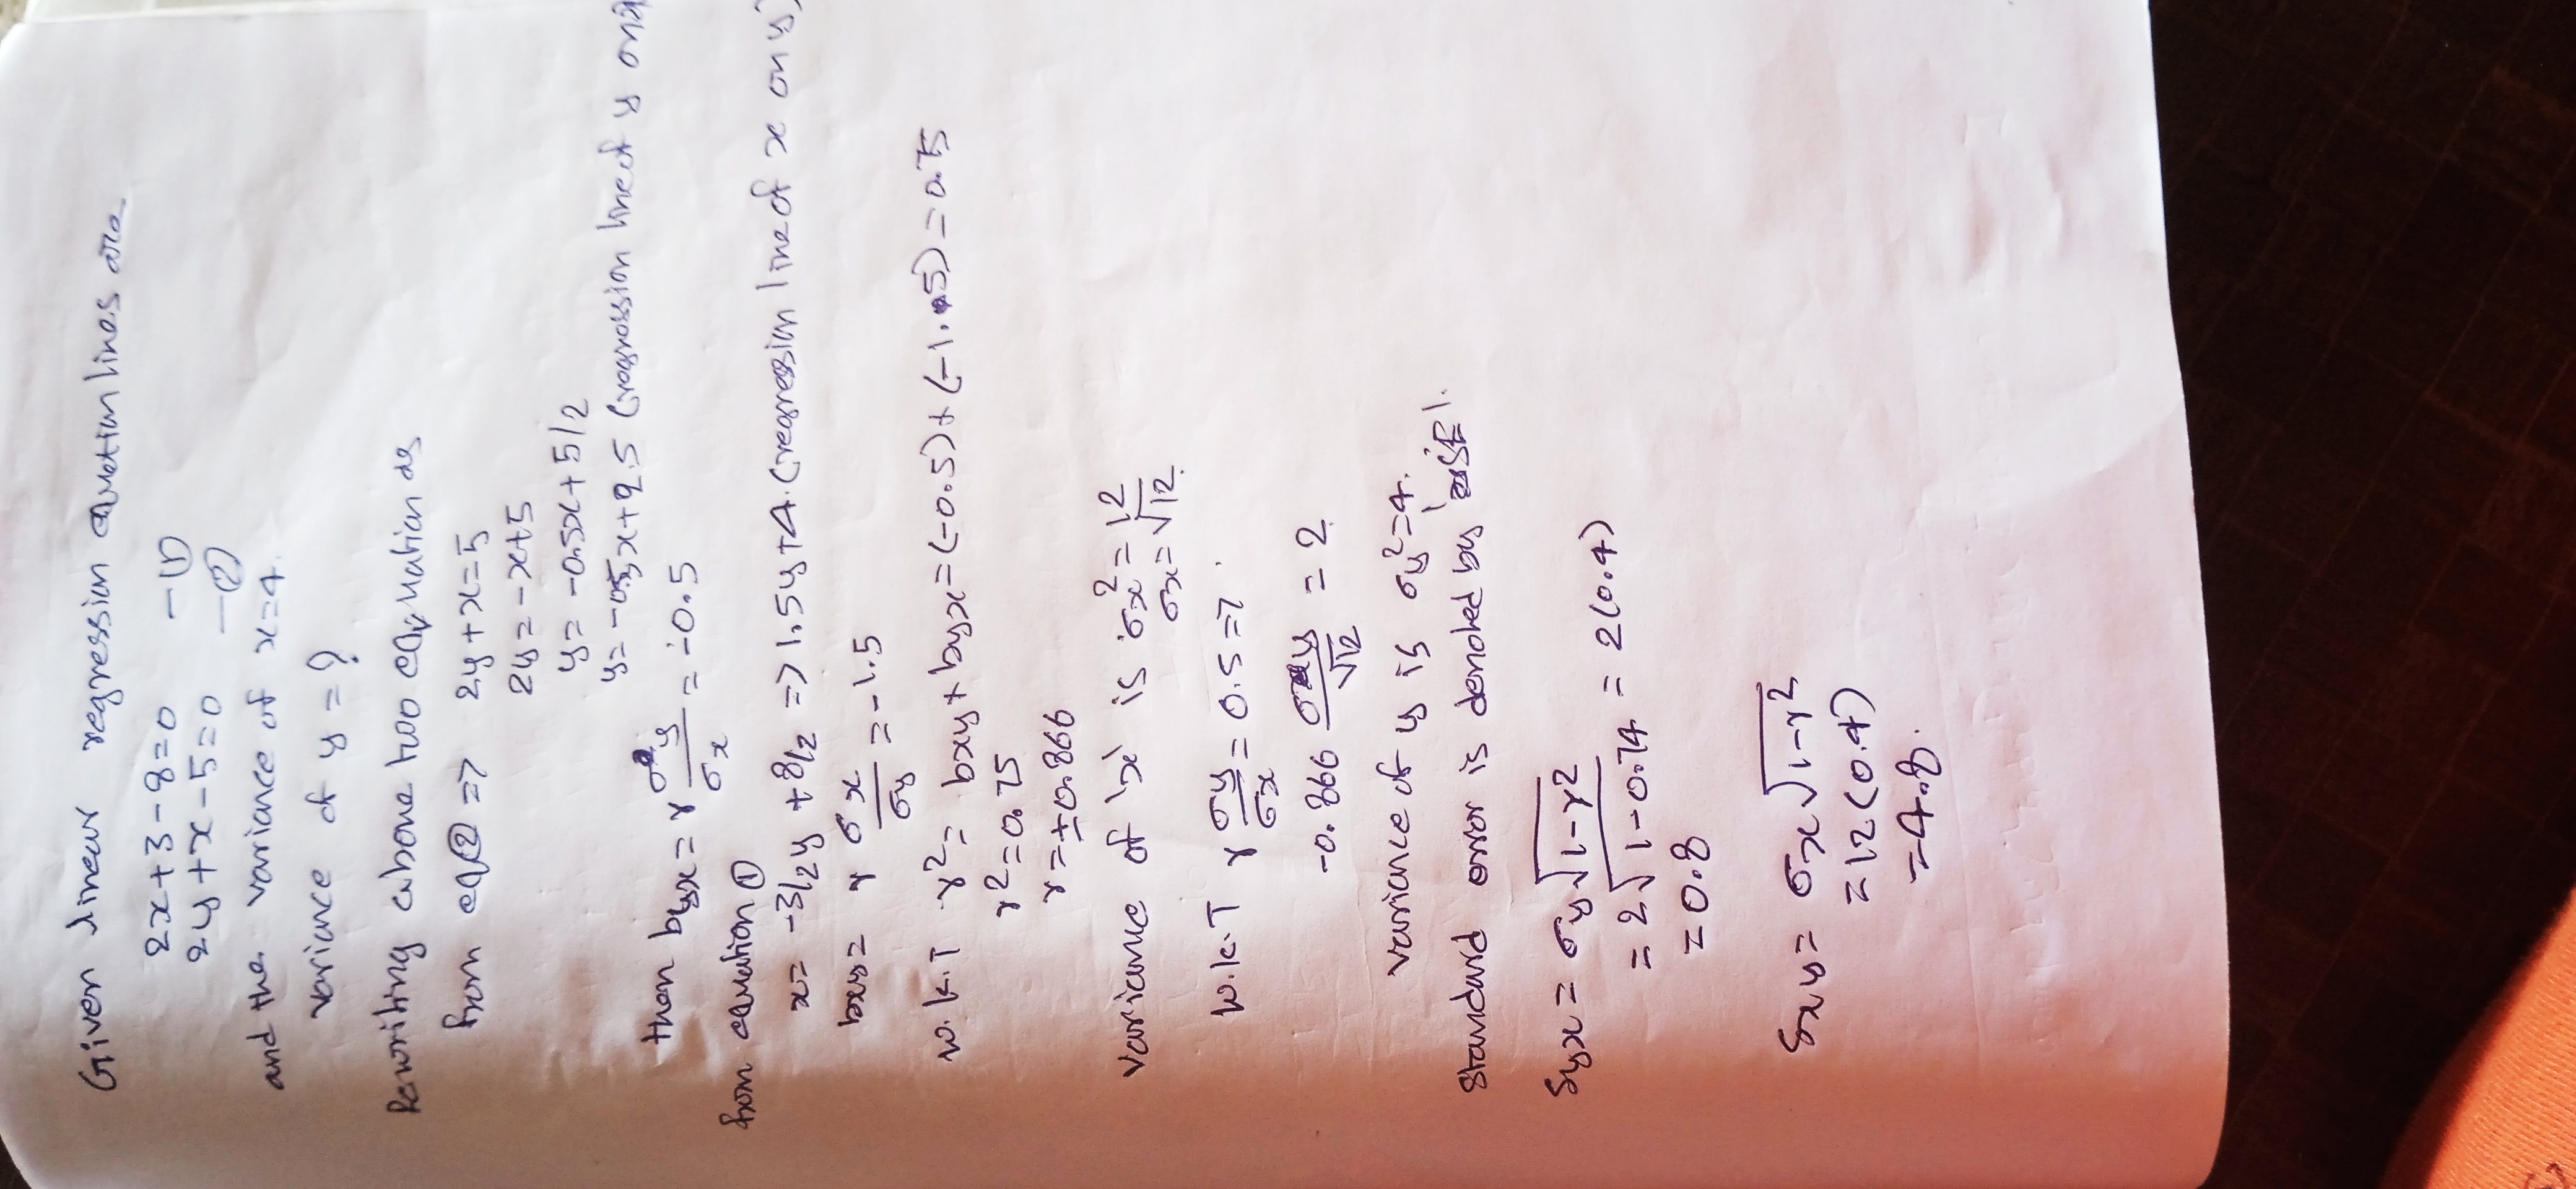 Given linear regression equation lines are
2x+3-8=0 -(1)
2y+x-5=0 -(2)
and the variance of x=4.
variance of y=?
Rewriting above two equation as
from eq(2) => 2y+x=5
2y=-x+5
y=-0.5x+5/2
y=-0.5x+2.5 (regression line of y on x
then byx=r σy/σx = -0.5
from equation (1)
x=-3/2y+8/2 => 1.5y+4.(regression line of x on y)
bxy= r σx/σy = -1.5
w.k.T r²= bxy+byx=(-0.5)+(-1.5)=0.75
r²=0.75
r=±0.866
variance of 'x' is σx²=12
σx=√12.
w.k.T r σy/σx = 0.5=>.
-0.866 σy/√12 = 2
variance of y is σy²=4.
Standard error is denoted by
Syx= σy√1-r²
=2√1-0.74 = 2(0.4)
=0.8
Sxy= σx√1-r²
=12(0.4)
=4.8.